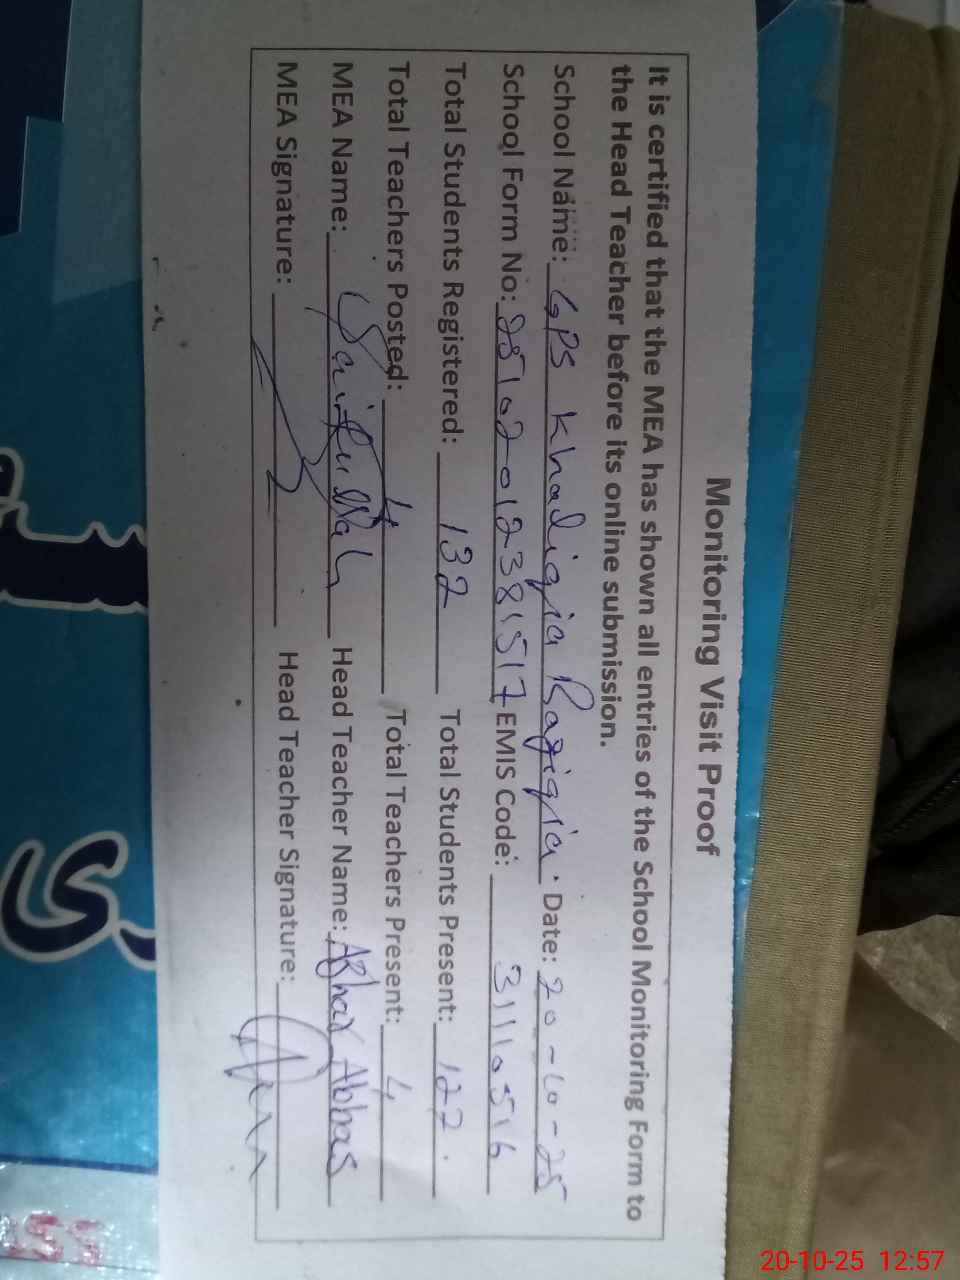 Monitoring Visit Proof
It is certified that the MEA has shown all entries of the School Monitoring Form to
the Head Teacher before its online submission.
School Name: GPS Khadiqia Raziqia. Date: 20-10-25
School Form No: 25102012381517 EMIS Code: 31110516
Total Students Registered: 132 Total Students Present: 122.
Total Teachers Posted: 4 Total Teachers Present: 4
MEA Name: Saifullah Head Teacher Name: Abbas
MEA Signature: Head Teacher Signature:
20-10-25 12:57